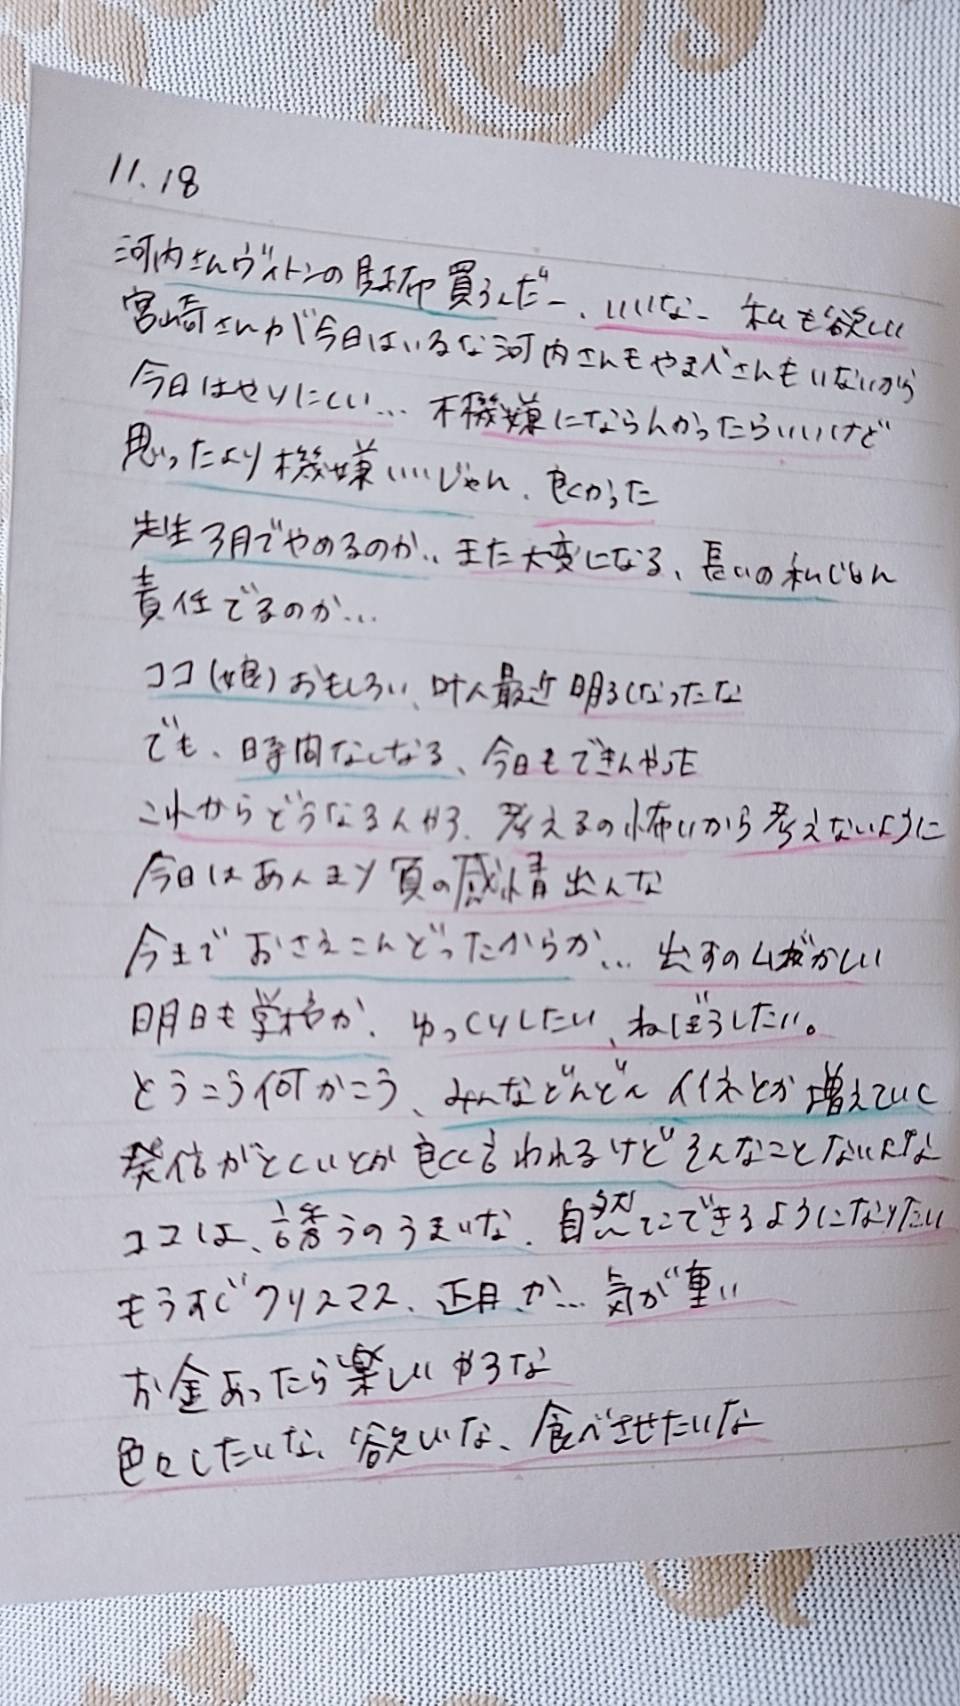 11.18
河内さんヴィトンの財布買うんだー、いいなー 私も欲しい
宮崎さんが今日はいるな河内さんもやまべさんもいないから
今日はやりにくい… 不機嫌にならんかったらいいけど
思ったより機嫌いいじゃん、良かった
先生3月でやめるのか.. また大変になる、長いの私じゃん
責任でるのか…
ココ(娘)おもしろい、叶人最近明るくなったな
でも、時間なくなる、今日もできんやった
これからどうなるんやろ、考えるの怖いから考えないように
今日はあんまり負の感情出んな
今までおさえこんどったからか… 出すのムズかしい
明日も学校か、ゆっくりしたい、ねぼうしたい。
とうこう何かこう、みんなどんどんイイネとか増えていく
発信がとくいとか良く言われるけどそんなことないんよな
ココは、誘うのうまいな、自然にできるようになりたい
もうすぐクリスマス、正月、か… 気が重い
お金あったら楽しいやろな
色々したいな、欲しいな、食べさせたいな